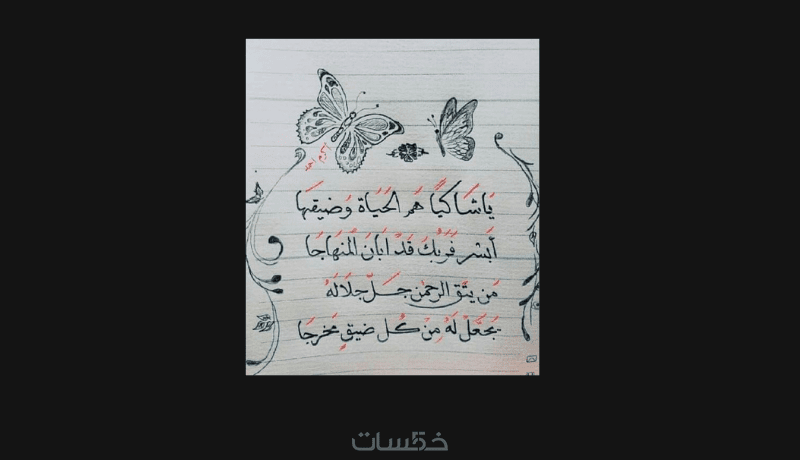 يَاشَاكيًا هَم الحَيَاة وَضيقهَا
أبشر فَرَبُكَ قَد ابَانَ المنهَاجَا
مَن يتق الرحمٰن جَلّ جلَالَهُ
يَجعَل لَهُ مِن كُل ضيقٍ مَخرجَا
خمسات